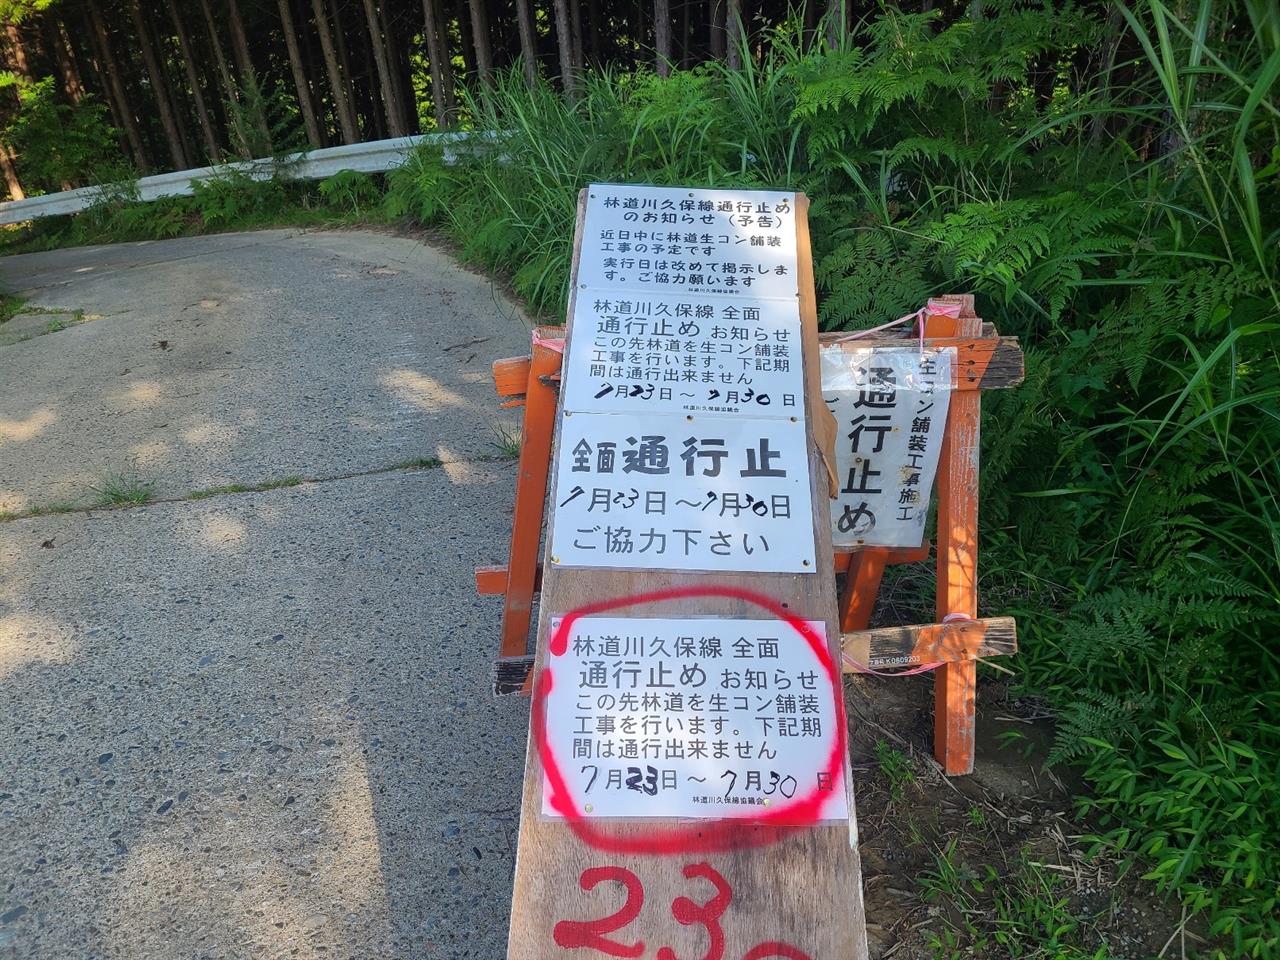 林道川久保線通行止め
のお知らせ（予告）
近日中に林道生コン舗装
工事の予定です
実行日は改めて掲示しま
す。ご協力願います
林道川久保線協議会
林道川久保線 全面
通行止め お知らせ
この先林道を生コン舗装
工事を行います。下記期
間は通行出来ません
7月23日～7月30日
林道川久保線協議会
全面通行止
7月23日～7月30日
ご協力下さい
林道川久保線 全面
通行止め お知らせ
この先林道を生コン舗装
工事を行います。下記期
間は通行出来ません
7月23日～7月30日
林道川久保線協議会
23
生コン舗装工事施工
通行止め
K0609203